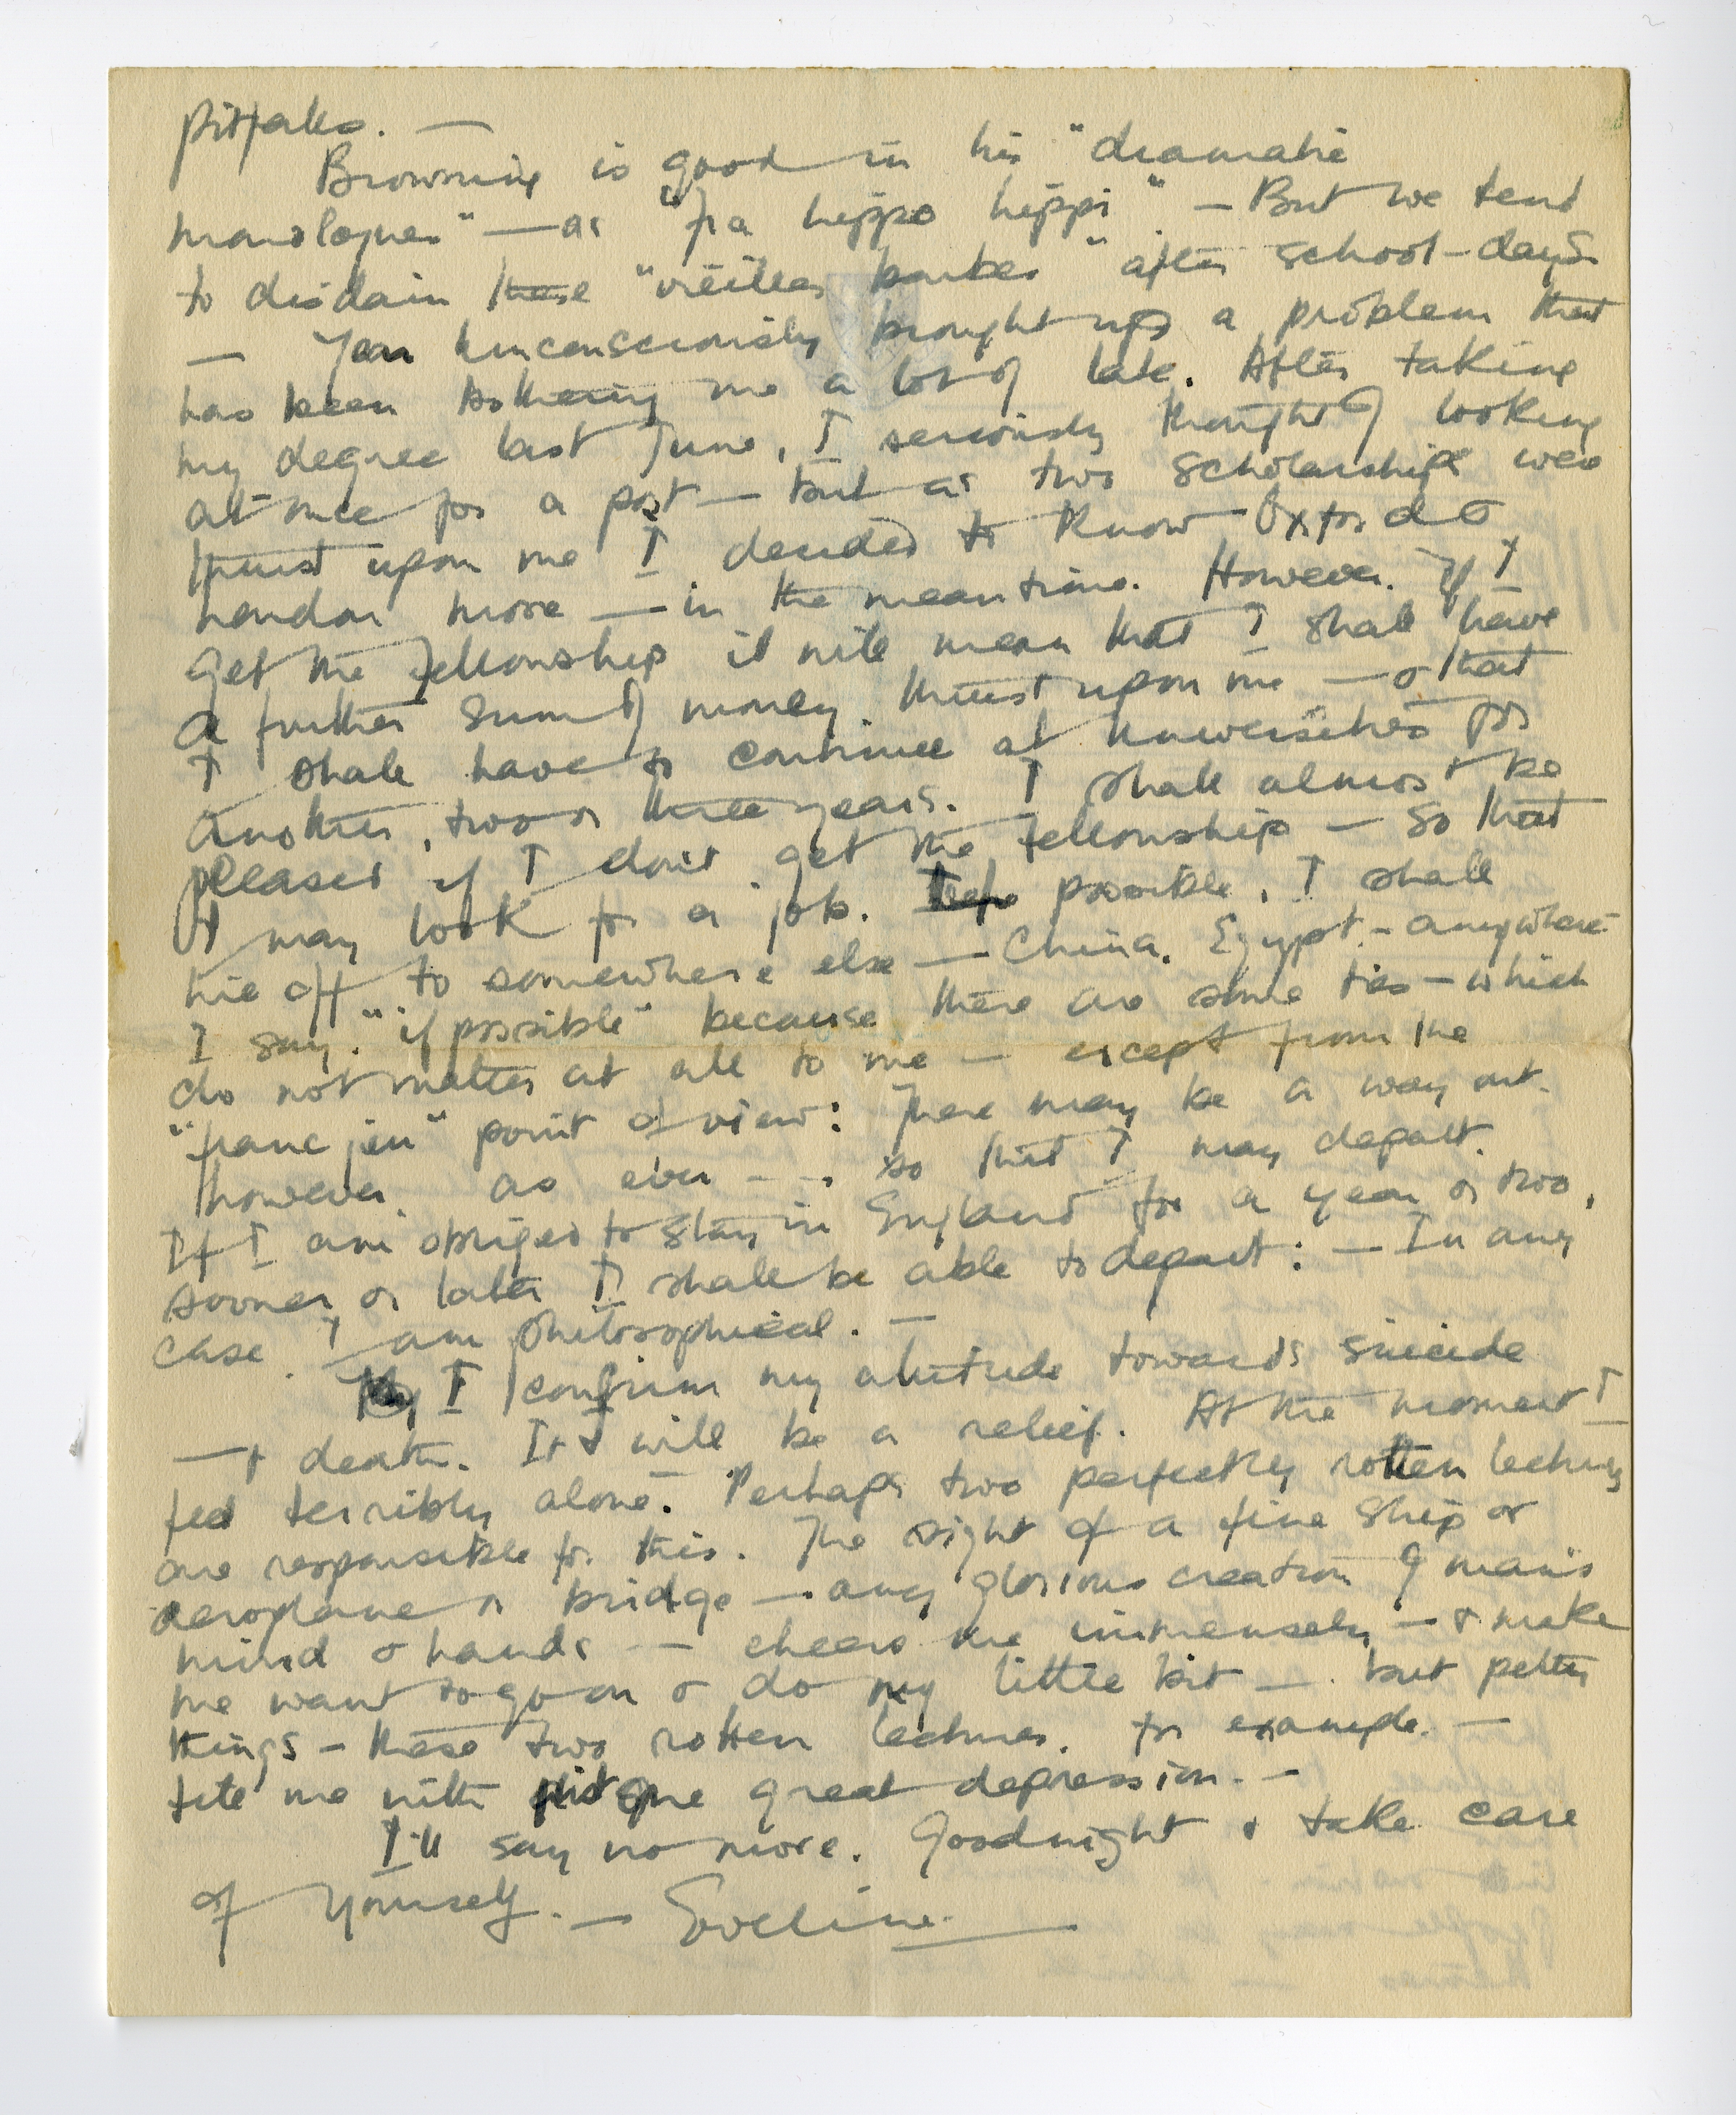 pitfalls. —
Browning is good in his "dramatic
monologues" — as "Fra Lippo Lippi" — But we tend
to disdain these "vieilles barbes" after school-days
— You unconsciously brought up a problem that
has been bothering me a lot of late. After taking
my degree last June, I seriously thought of looking
at once for a post — but as two scholarships were
thrust upon me I decided to know Oxford &
London more — in the meantime. However. If I
get the Fellowship it will mean that I shall have
a further sum of money thrust upon me — & that
I shall have to continue at Universities for
another, two or three years. I shall almost be
pleased if I don't get the Fellowship — so that
I may look for a job. If possible, I shall
hie off to somewhere else — China, Egypt — anywhere
I say "if possible" because there are some ties — which
do not matter at all to me — except from the
"franc jeu" point of view: There may be a way out
however, as ever - - , so that I may depart.
If I am obliged to stay in England for a year or two,
sooner or later I shall be able to depart: — In any
case. I am philosophical. —
I confirm my attitude towards suicide
— & death. It will be a relief. At the moment I
feel terribly alone. Perhaps two perfectly rotten lectures
are responsible for this. The sight of a fine ship or
aeroplane or bridge — any glorious creation of man's
mind & hands — cheers me immensely — & make
me want to go on & do my little bit — . but petty
things — these two rotten lectures, for example. —
fill me with great depression. —
I'll say no more. Goodnight & take care
of yourself. — Eveline.